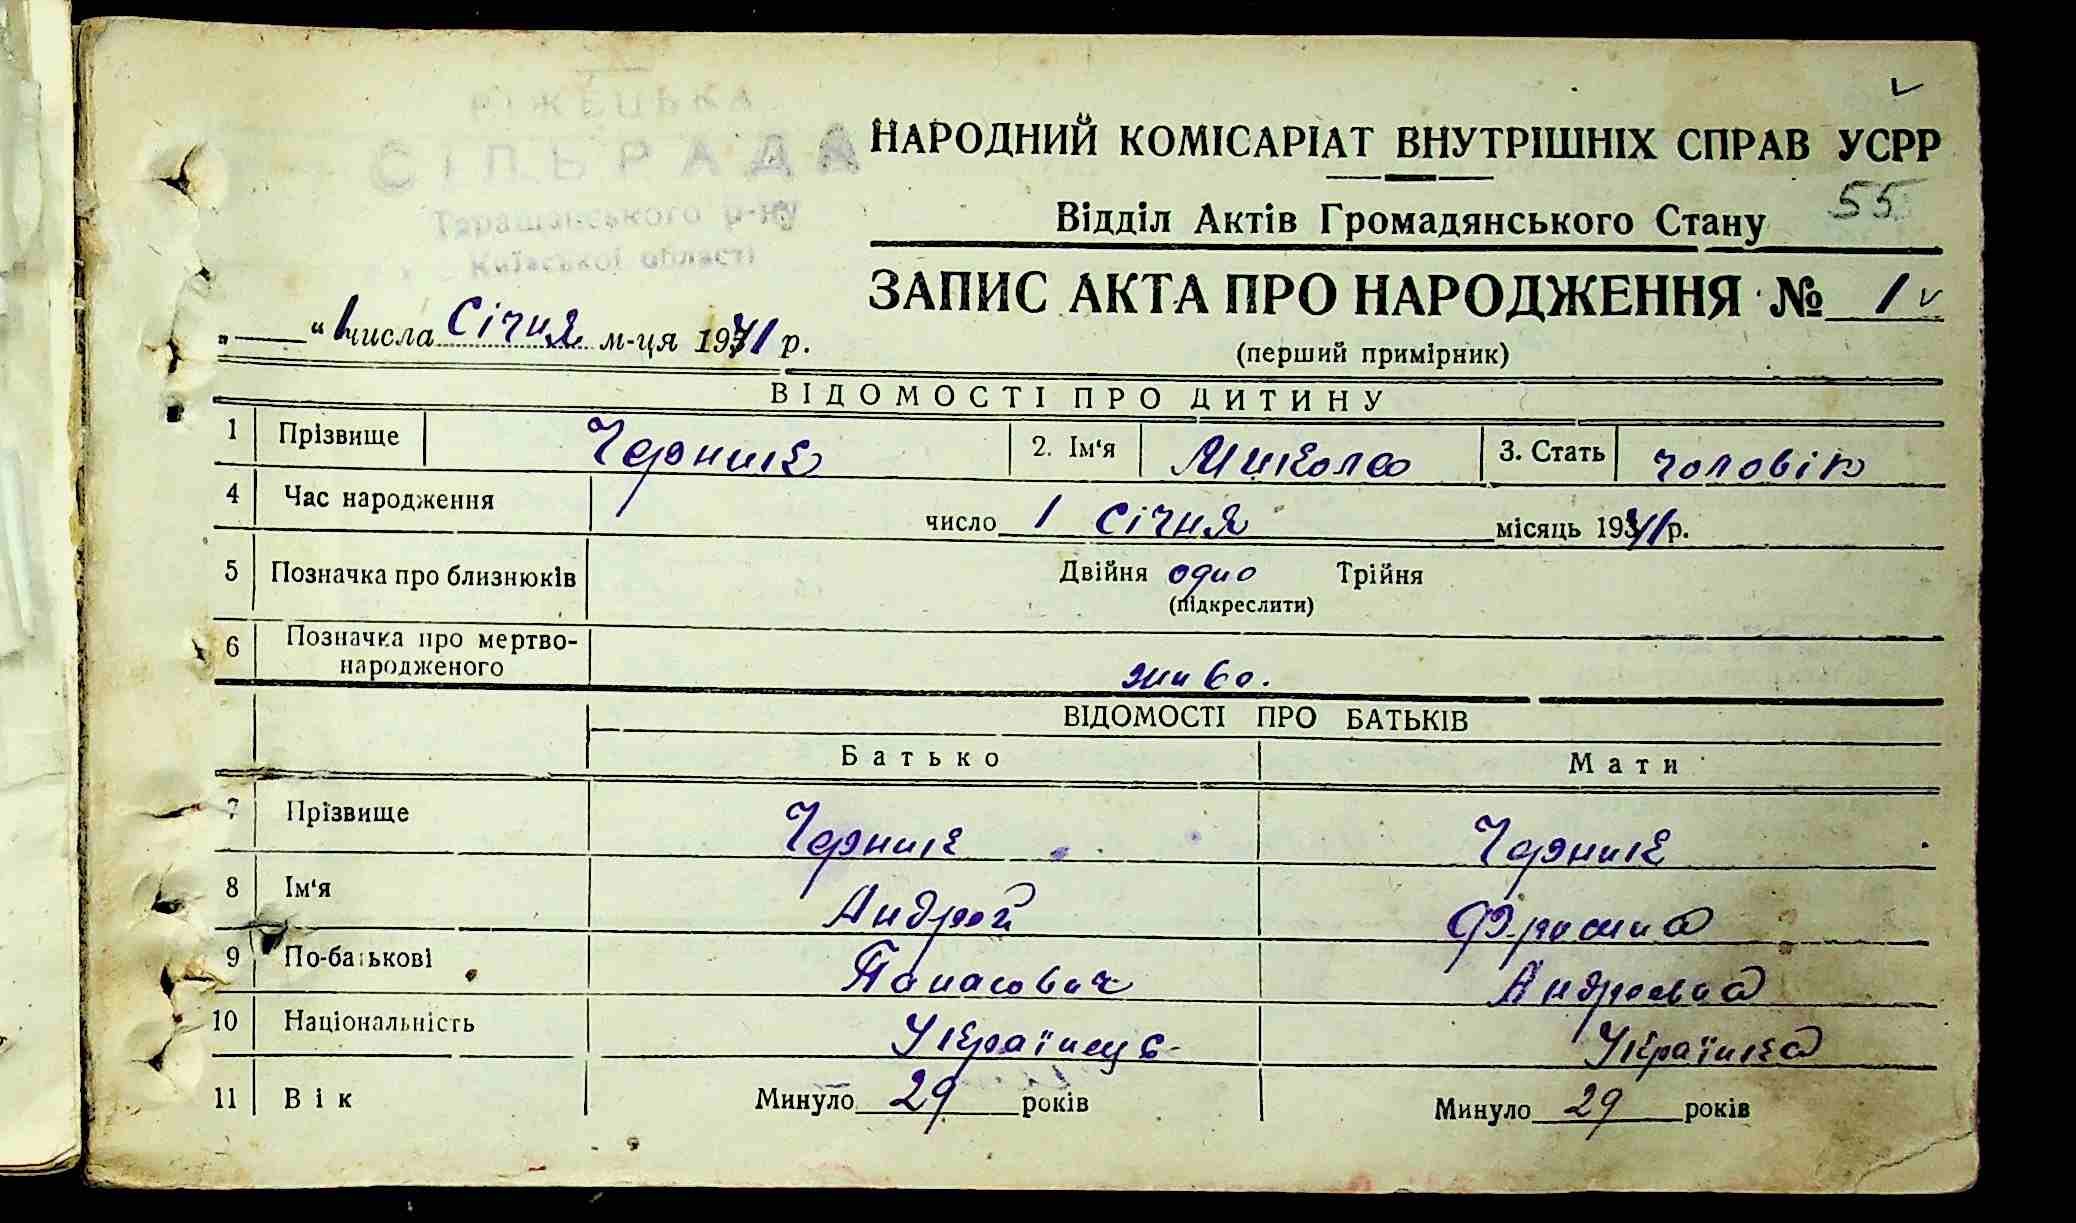 РІЖЕЦЬКА
СІЛЬРАДА
Таращанського р-ну
Київської області
НАРОДНИЙ КОМІСАРІАТ ВНУТРІШНІХ СПРАВ УСРР
55
Відділ Актів Громадянського Стану
ЗАПИС АКТА ПРО НАРОДЖЕННЯ № 1
„ “ 1 числа Січня м-ця 1941 р.
(перший примірник)
ВІДОМОСТІ ПРО ДИТИНУ
1 Прізвище Черник 2. Ім‘я Микола 3. Стать чоловік
4 Час народження число 1 Січня місяць 1941 р.
5 Позначка про близнюків Двійня одно Трійня
(підкреслити)
6 Позначка про мертво-
народженого живо.
ВІДОМОСТІ ПРО БАТЬКІВ
Батько Мати
7 Прізвище Черник Черник
8 Ім‘я Андрей Фросина
9 По-батькові Панасович Андреевна
10 Національність Українец Українка
11 Вік Минуло 29 років Минуло 29 років